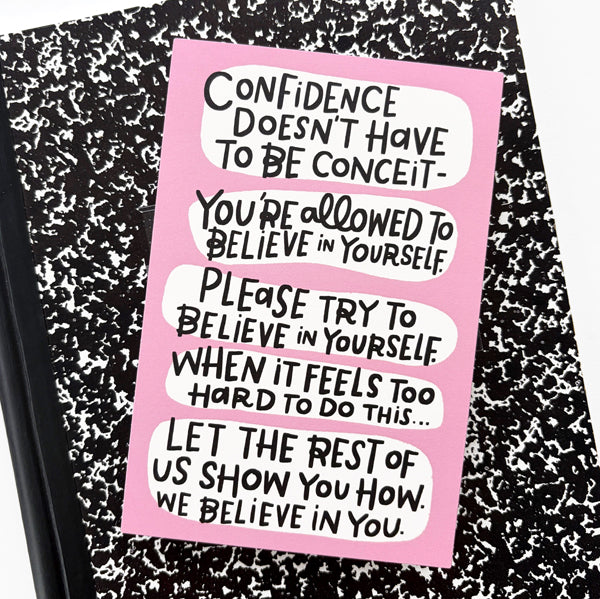 CONFiDENCE
DOESN'T HaVE
TO BE CONCEiT-
YOU'RE allOWED TO
BELiEVE iN YOURSELF.
PLEaSE TRY TO
BELiEVE iN YOURSELF.
WHEN iT FEELS TOO
HaRD TO DO THiS...
LET THE REST OF
US SHOW YOU HOW.
WE BELiEVE iN YOU.